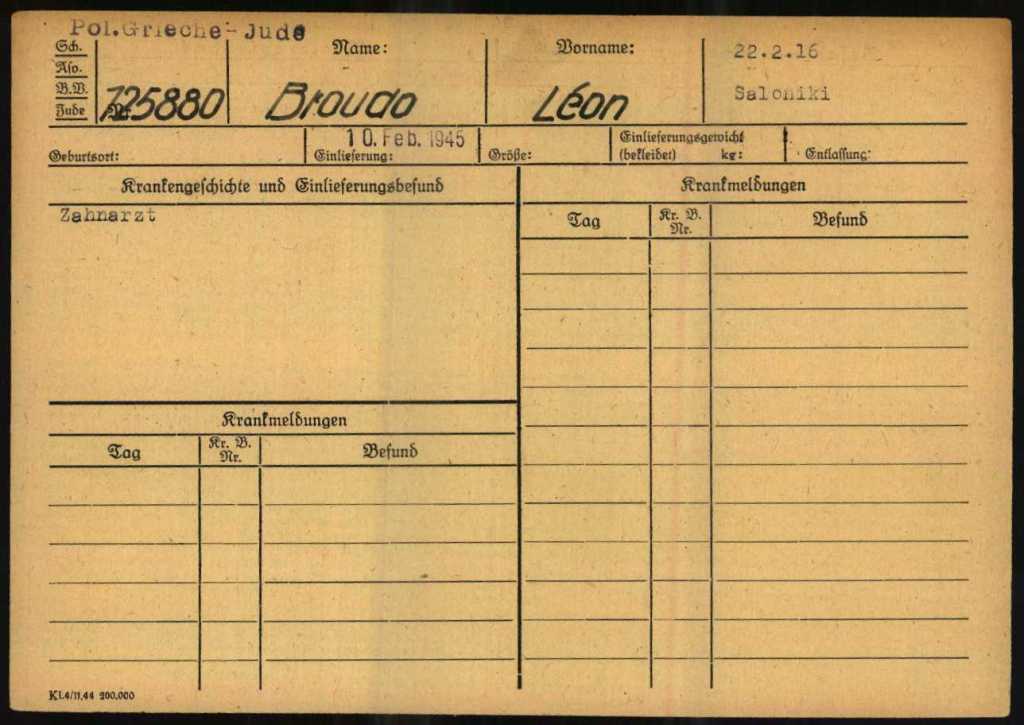 Pol.Grieche-Jude
Sch.
Aso.
B.V.
Jude
Nr. 125880
Name:
Broudo
Vorname:
Léon
22.2.16
Saloniki
Geburtsort:
10. Feb. 1945
Einlieferung:
Größe:
Einlieferungsgewicht
(bekleidet) kg:
Entlassung:
Krankengeschichte und Einlieferungsbefund
Zahnarzt
Krankmeldungen
Tag Kr. B. Nr. Befund
Krankmeldungen
Tag Kr. B. Nr. Befund
KL4/11.44 200.000